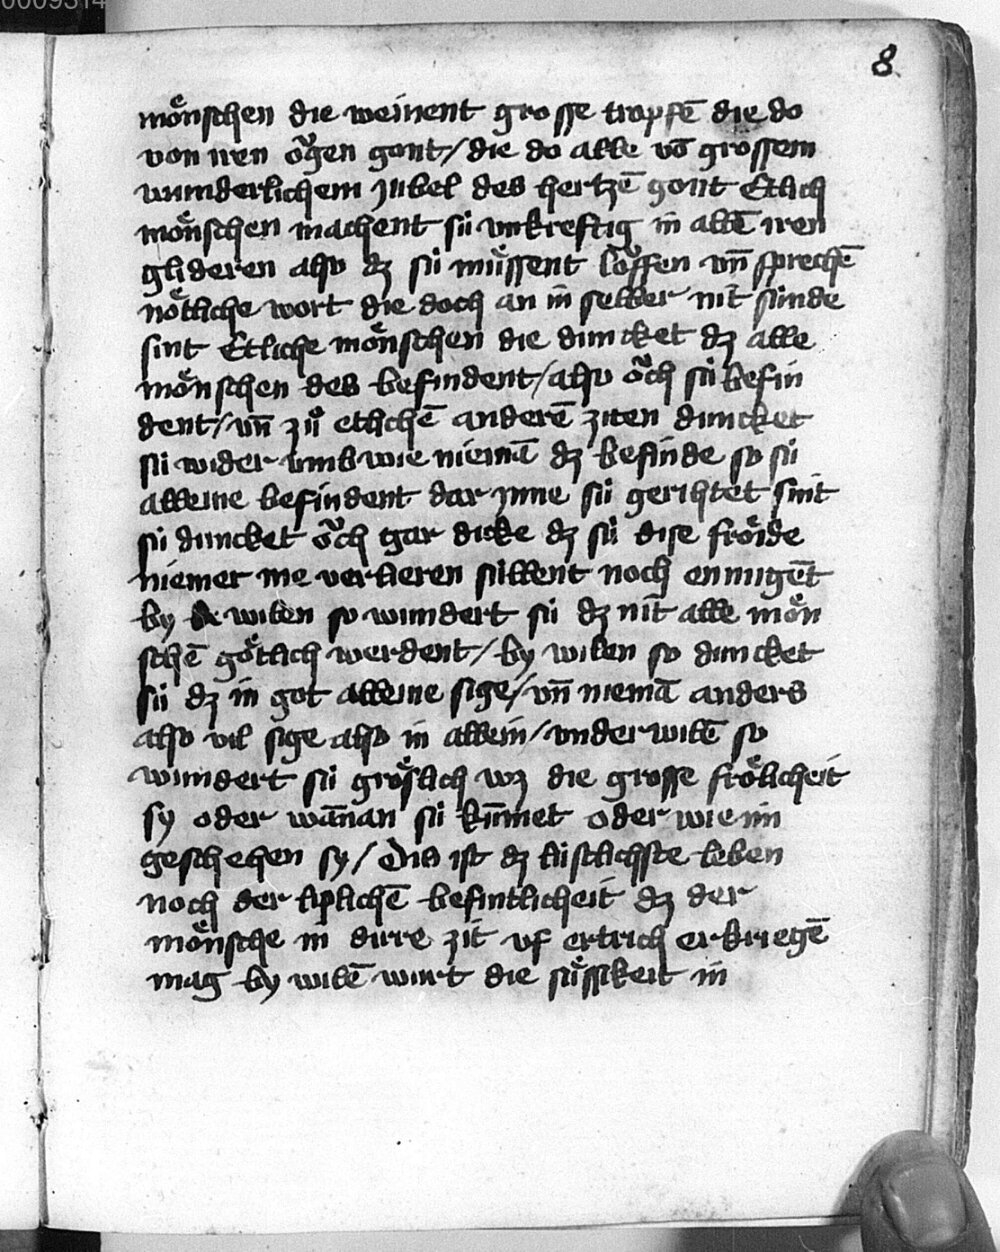 0009314
8
moͤnschen die weinent grosse tropfē die do
von iren oͮgen gont / die do alle vō grossem
wunderlichem jubel des hertzē gont Etlich
moͤnschen machent sú vnkreftig in allē iren
glideren also dz sú muͤssent loͮffen vn̄ sprechē
noͤtliche wort die doch an in selber nit súnde
sint Etliche moͤnschen die duncket dz alle
moͤnschen des befindent / also oͮch sú befin
dent / vn̄ zuͦ etlichē anderē ziten duncket
sú wider vmb wie niemā dz befinde so sú
alleine befindent dar jnne sú gerihtet sint
sú duncket oͮch gar dicke dz sú dise froͤide
niemer me verlieren súllent noch enmúgēt
by wilen so wundert sú dz nit alle moͤn
schē goͤtlich werdent / by wilen so duncket
sú dz in got alleine sige / vn̄ niemā anders
also vil sige also in allein / vnder wilē so
wundert sú groͤslich wz die grosse froͤlicheit
sy oder wannan sú kūmet oder wie im
geschehen sy / Dis ist dz lústlichste leben
noch der liplichē befintlicheit dz der
moͤnsche in dirre zit vf ertrich erkriegē
mag by wilē wurt die suͤssikeit in